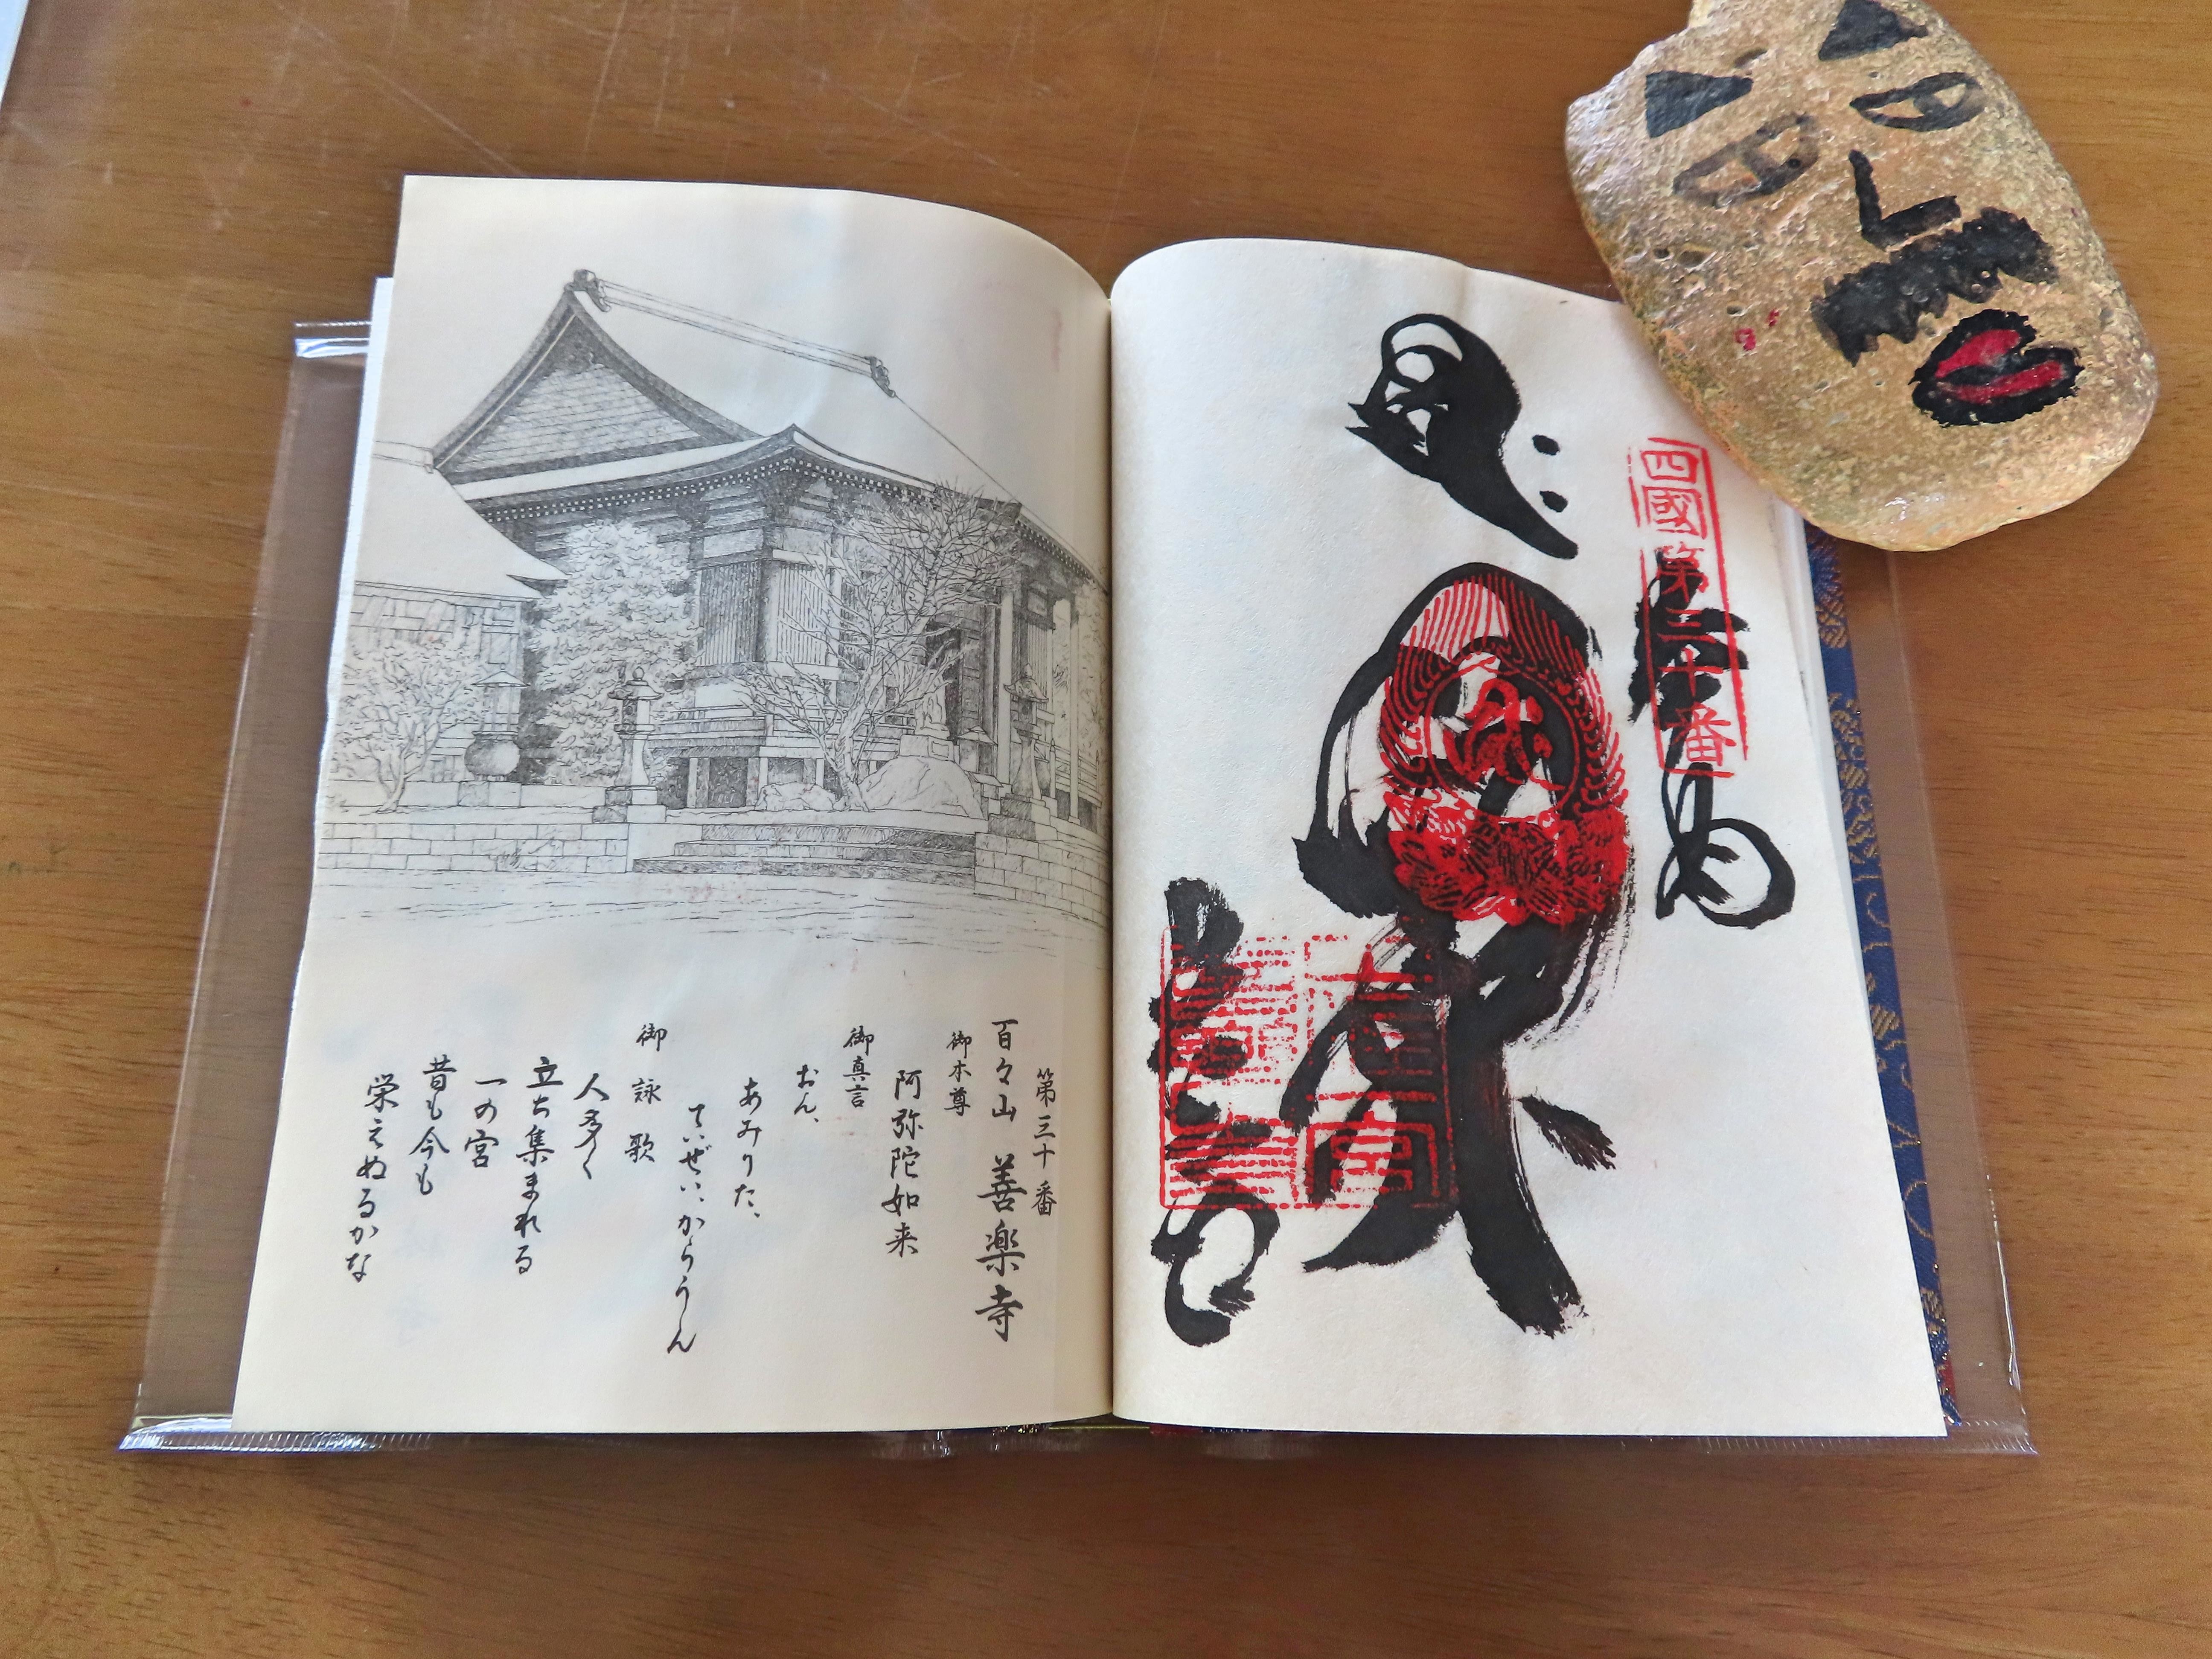 四國第三十番
奉納
第三十番
百々山 善楽寺
御本尊
阿弥陀如来
御真言
おん、
あみりた、
ていぜい、からうん
御詠歌
人多く
立ち集まれる
一の宮
昔も今も
栄えぬるかな